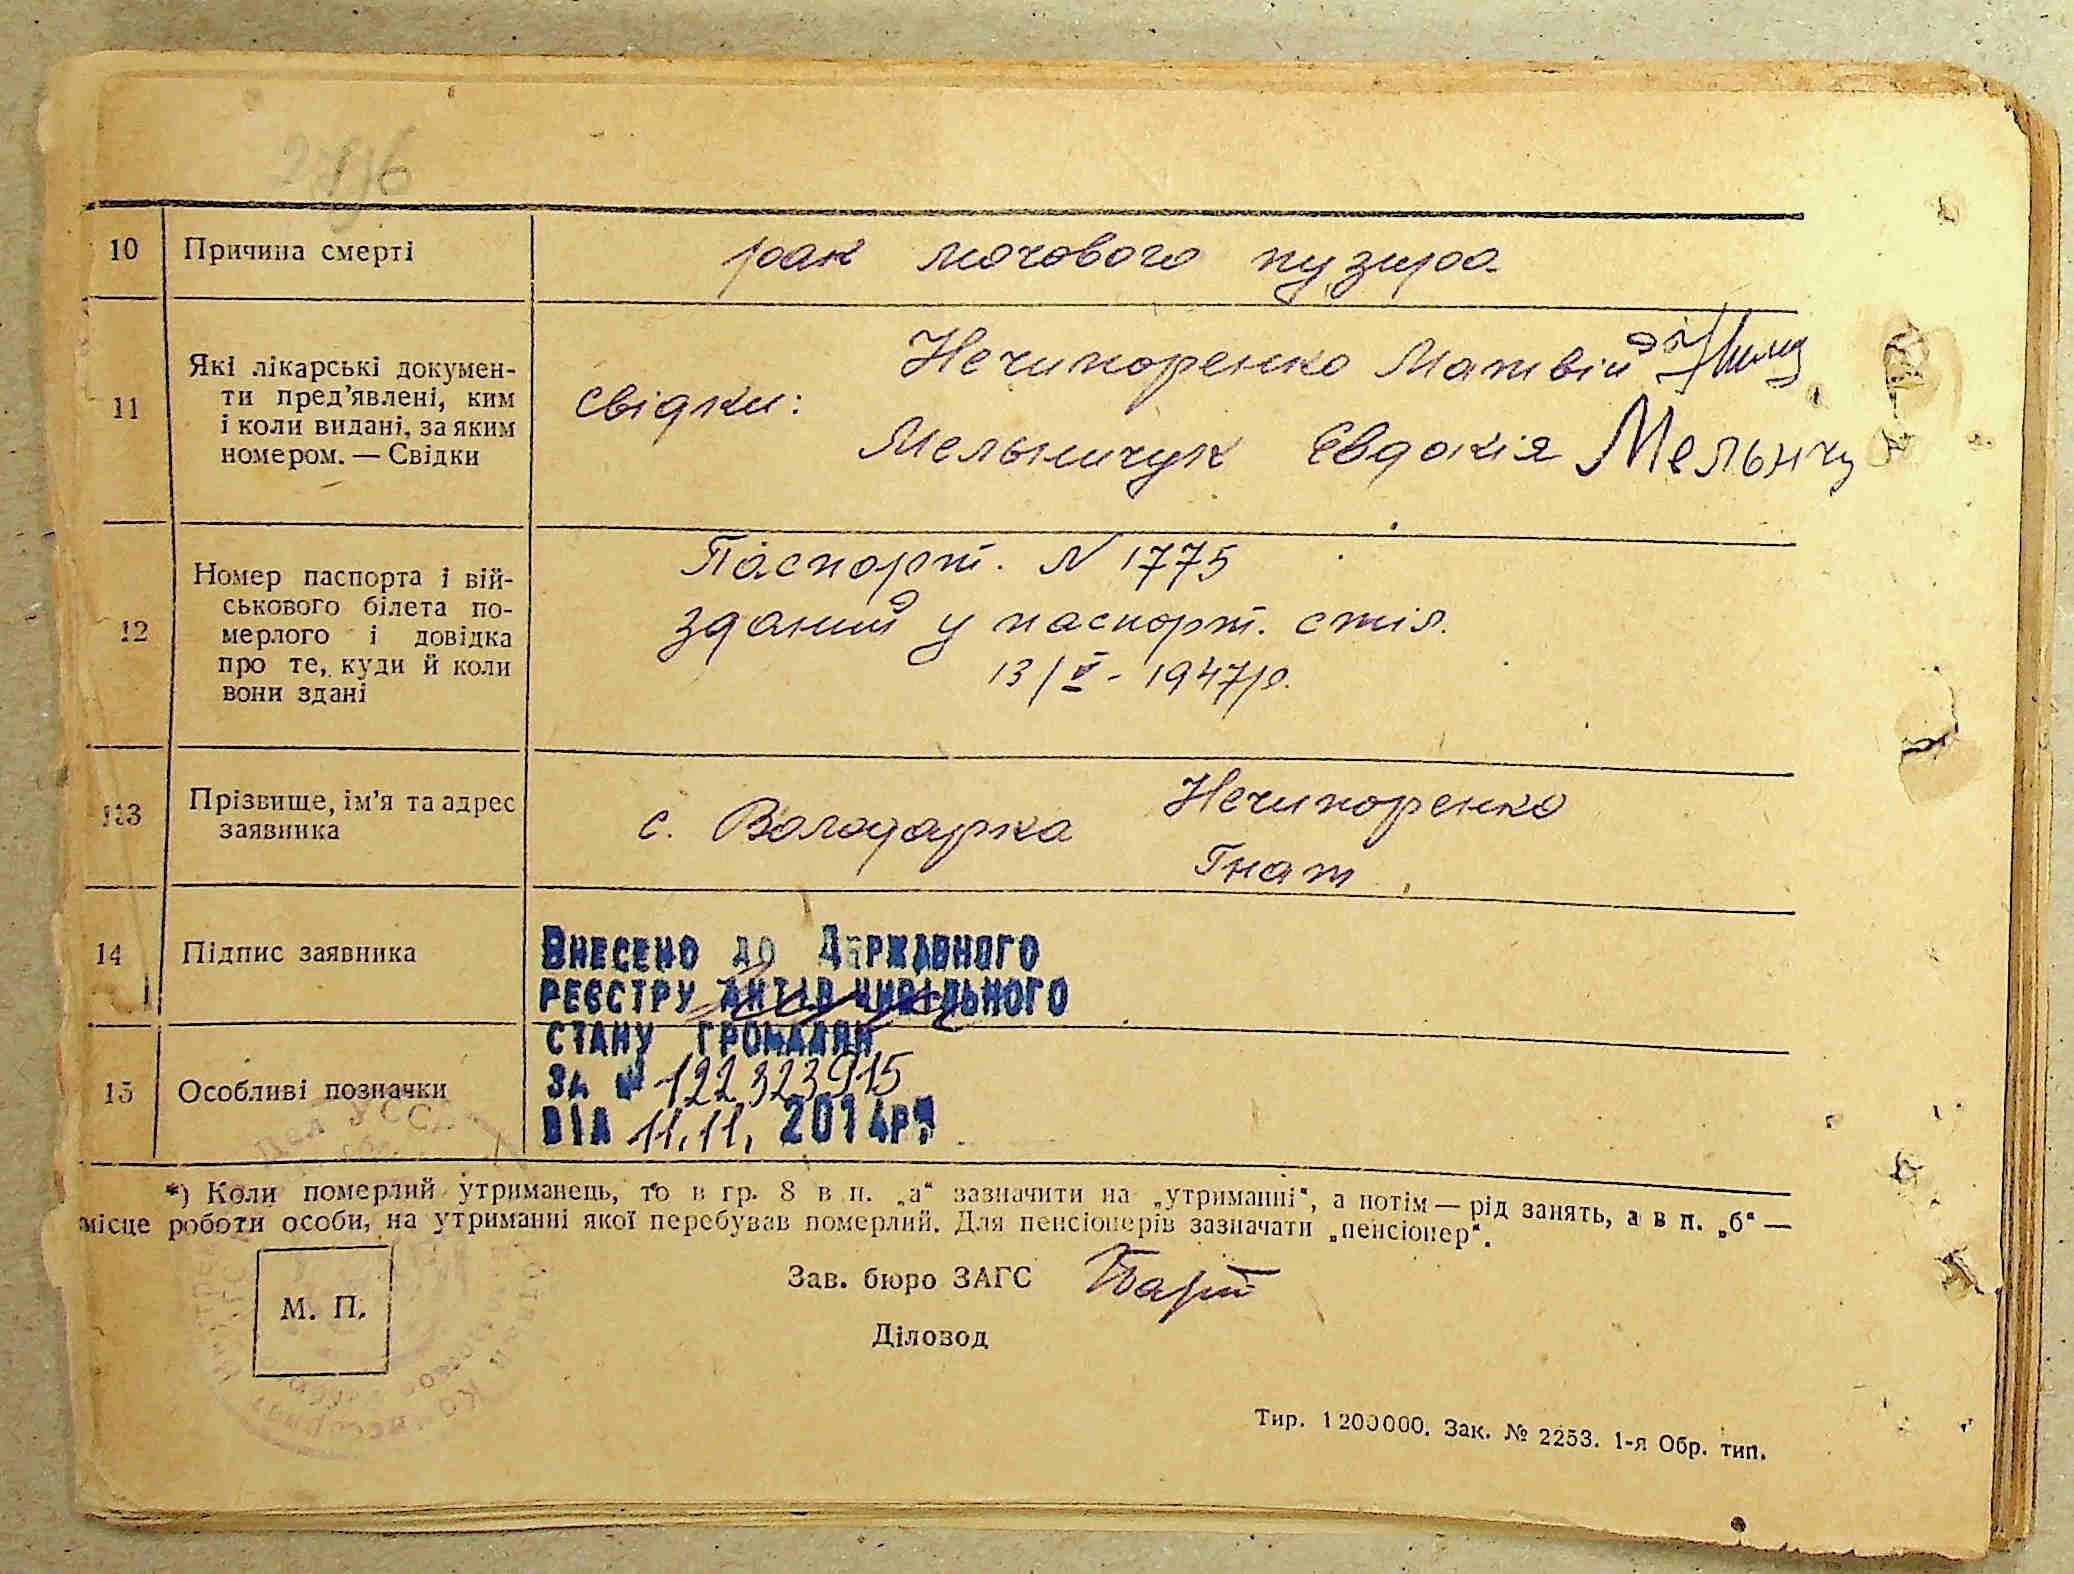 10 Причина смерті рак мочового пузиря
11 Які лікарські докумен-
ти пред'явлені, ким
і коли видані, за яким
номером. — Свідки
Нечипоренко Матвій
свідки:
Мельничук Євдокія Мельнчу
12 Номер паспорта і вій-
ськового білета по-
мерлого і довідка
про те, куди й коли
вони здані
Паспорт. N 1775
зданий у паспорт. стіл.
13/V - 1947 р.
13 Прізвище, ім'я та адрес
заявника
с. Володарка Нечипоренко
Гнат
14 Підпис заявника
15 Особливі позначки
Внесено до Державного
реєстру актів цивільного
стану громадян
за № 122323915
від 11.11. 2014р.
*) Коли померлий утриманець, то в гр. 8 в п. „а“ зазначити на „утриманні“, а потім — рід занять, а в п. „б“ —
місце роботи особи, на утриманні якої перебував померлий. Для пенсіонерів зазначати „пенсіонер“.
М. П.
Зав. бюро ЗАГС
Діловод
Тир. 1200000. Зак. № 2253. 1-я Обр. тип.